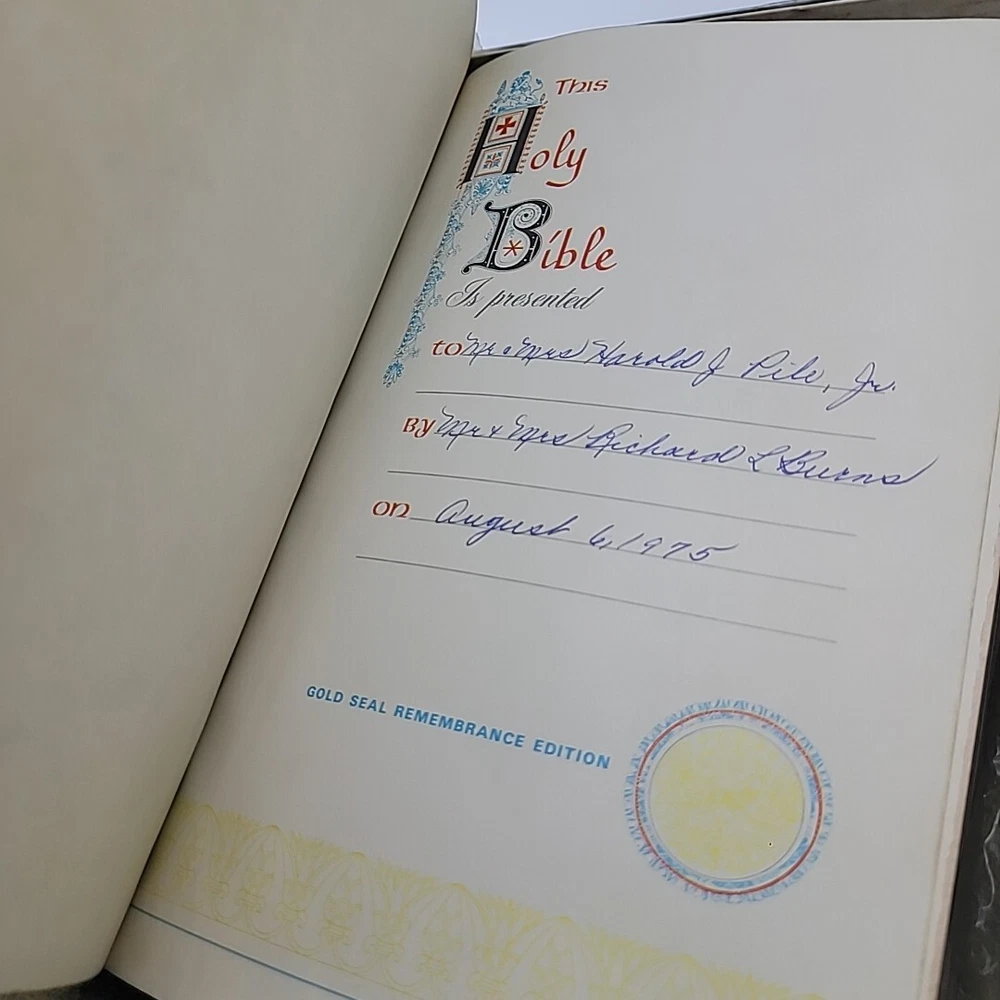 This
Holy
Bible
Is presented
to Mr & Mrs Harold J Pile, Jr.
By Mr & Mrs Richard L Burns
on August 6, 1975
GOLD SEAL REMEMBRANCE EDITION